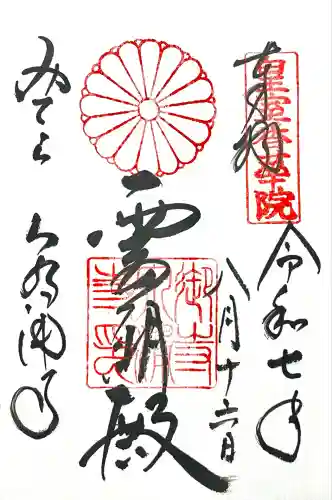 奉拝
皇室香華院
令和七年
八月十六日
霊明殿
御寺
みてら
泉涌寺